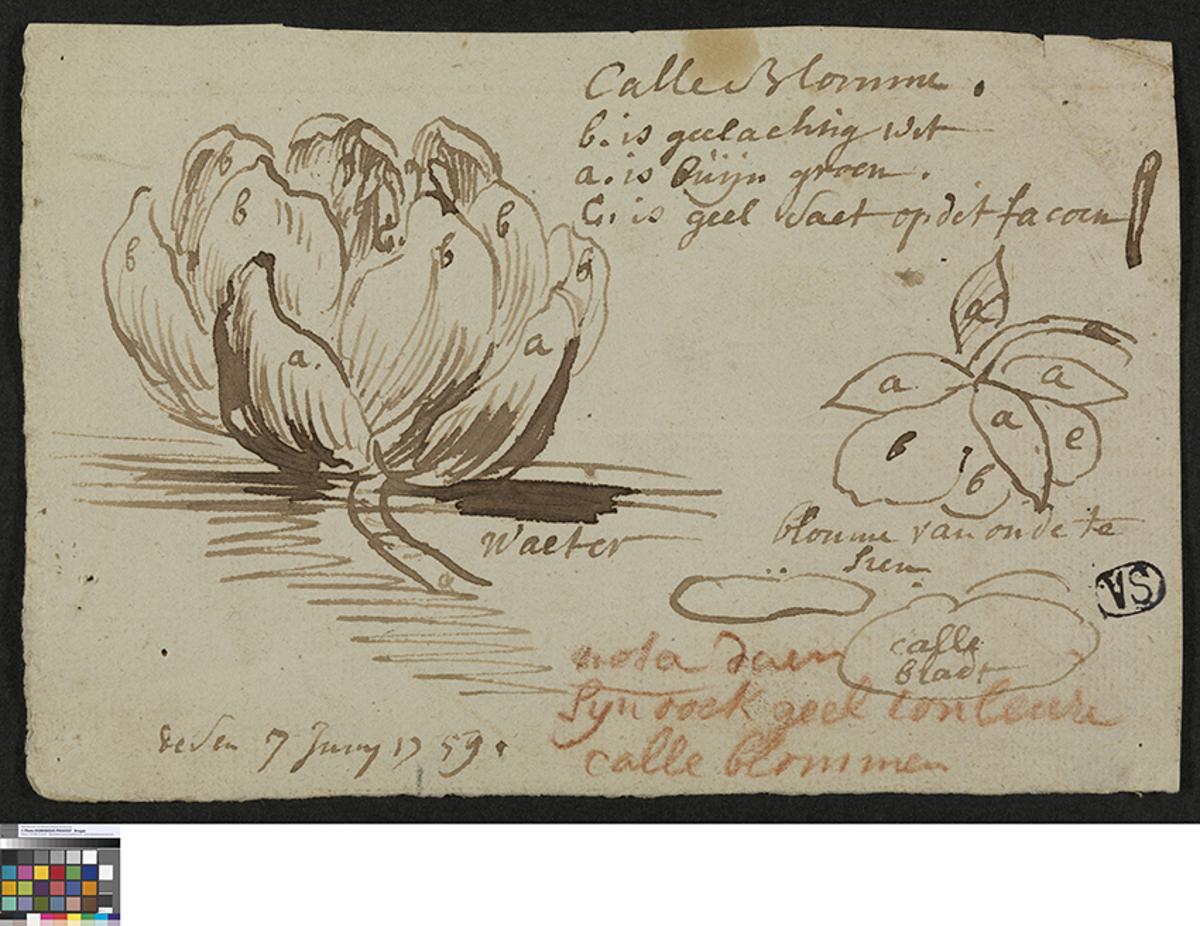 Calle Blomme.
b. is geelachtig wit
a. is bruijn groen.
C. is geel saet op dit facoen
b
b
b
b
b
b
c.
a.
a
a
Waeter
a
a
a
a
b
b
e
blomme van onde te
sien
calle
bladt
VS
nota daer
syn oock geel couleure
calle blommen
desen 7 Juny 1759.